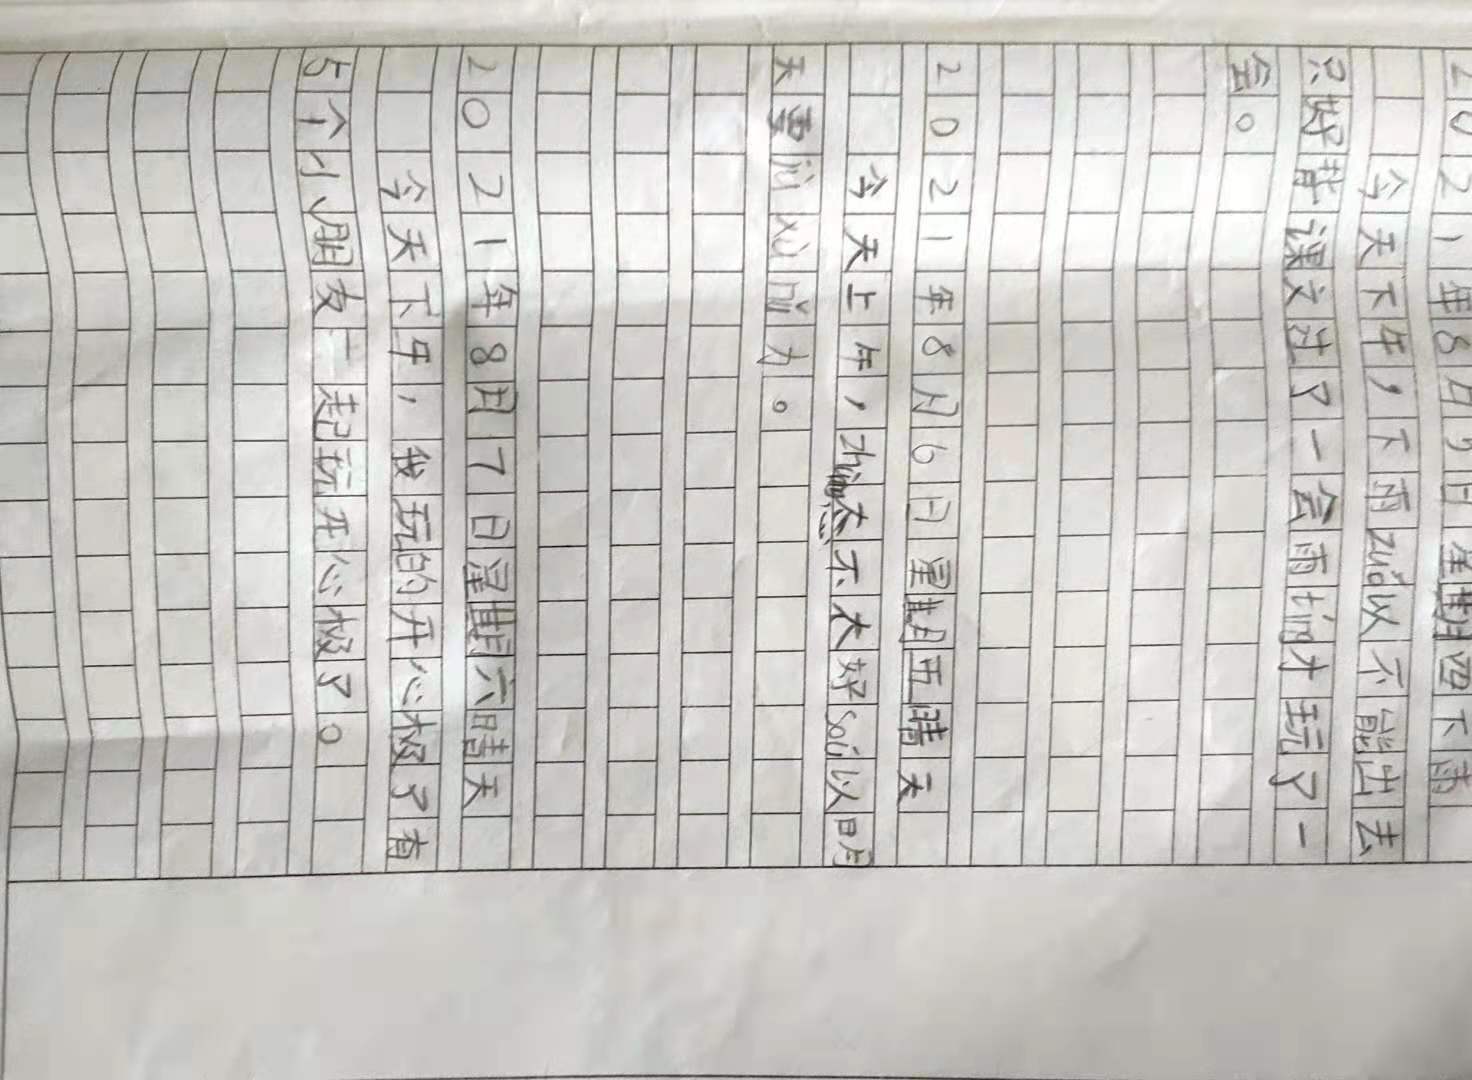 2021年8月5日星期四下雨
今天下午,下雨zuǒ以不能出去
只好背课文过了一会雨tíng才玩了一
会。
2021年8月6日星期五晴天
今天上午,不太好soǐ以明
天要
2021年8月17日星期六晴天
今天下午,我玩的开心极了有
5个小朋友一起玩开心极了。